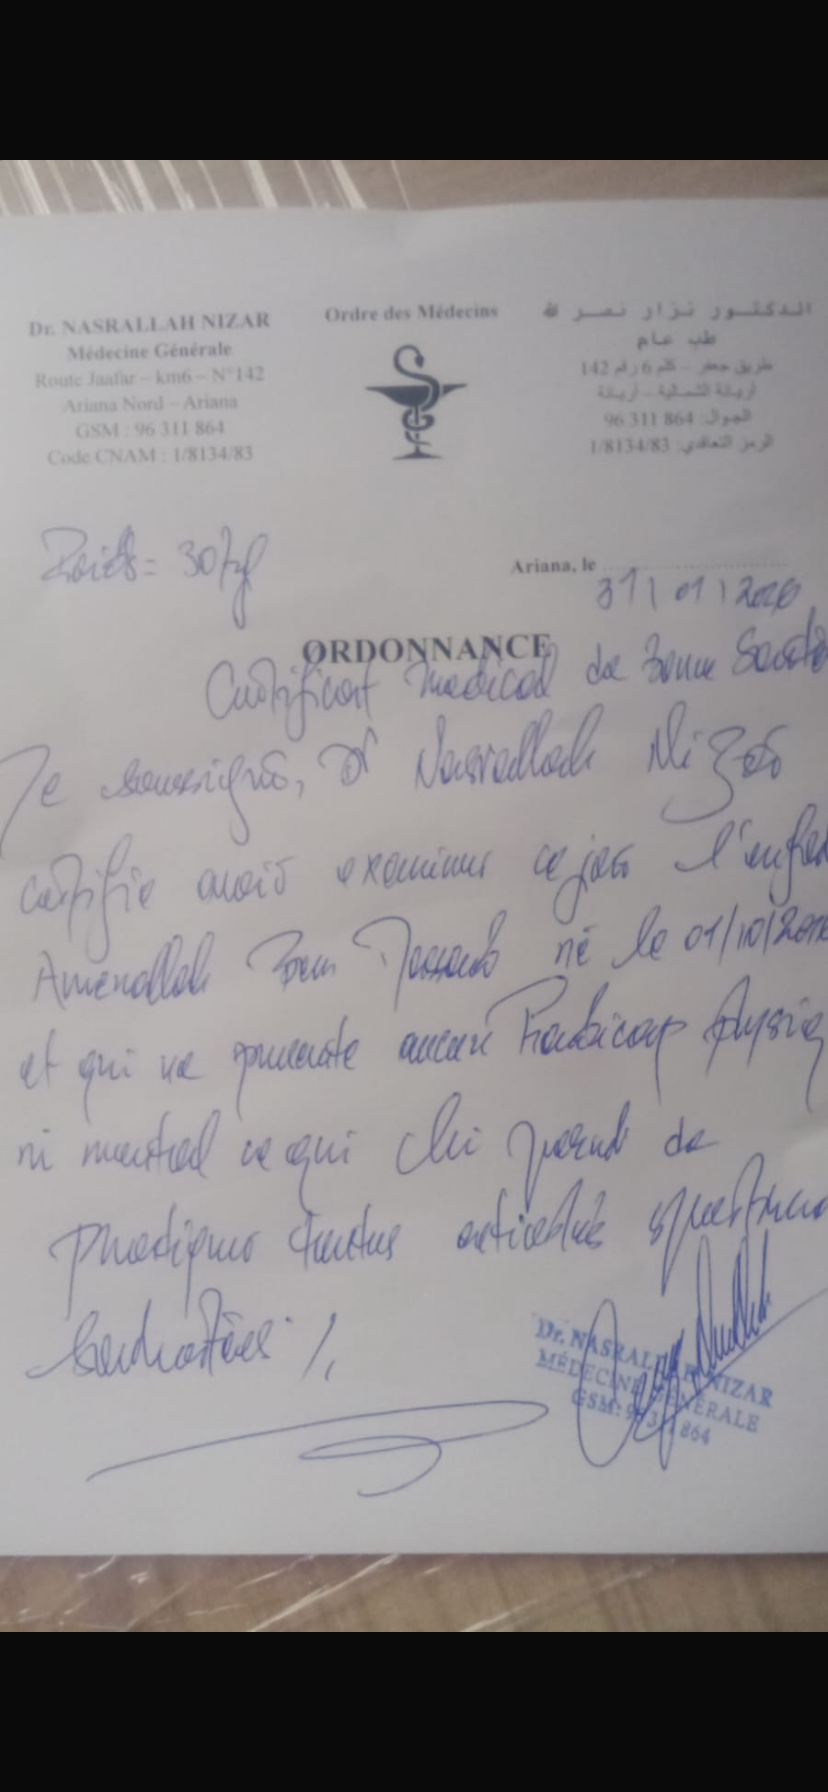 Dr. NASRALLAH NIZAR
Médecine Générale
Route Jaafar – km6 – N°142
Ariana Nord – Ariana
GSM : 96 311 864
Code CNAM : 1/8134/83
Ordre des Médecins
الدكتور نزار نصر الله
طب عام
طريق جعفر - كلم 6 رقم 142
أريانة الشمالية - أريانة
الجوال: 864 311 96
الرمز التعاقدي: 1/8134/83
Poids = 30 kg
Ariana, le
31/01/2026
ORDONNANCE
Certificat médical de bonne Santé
Je soussigné, Dr Nasrallah Nizar
certifie avoir examiner ce jour l'enfan
Amenallah Ben né le 01/10/201
et qui ne présente aucun handicap physiq
ni mental ce qui lui permet de
pratiquer toutes activités sportives
Dr. NASRALLAH NIZAR
MÉDECINE GÉNÉRALE
GSM: 96 311 864